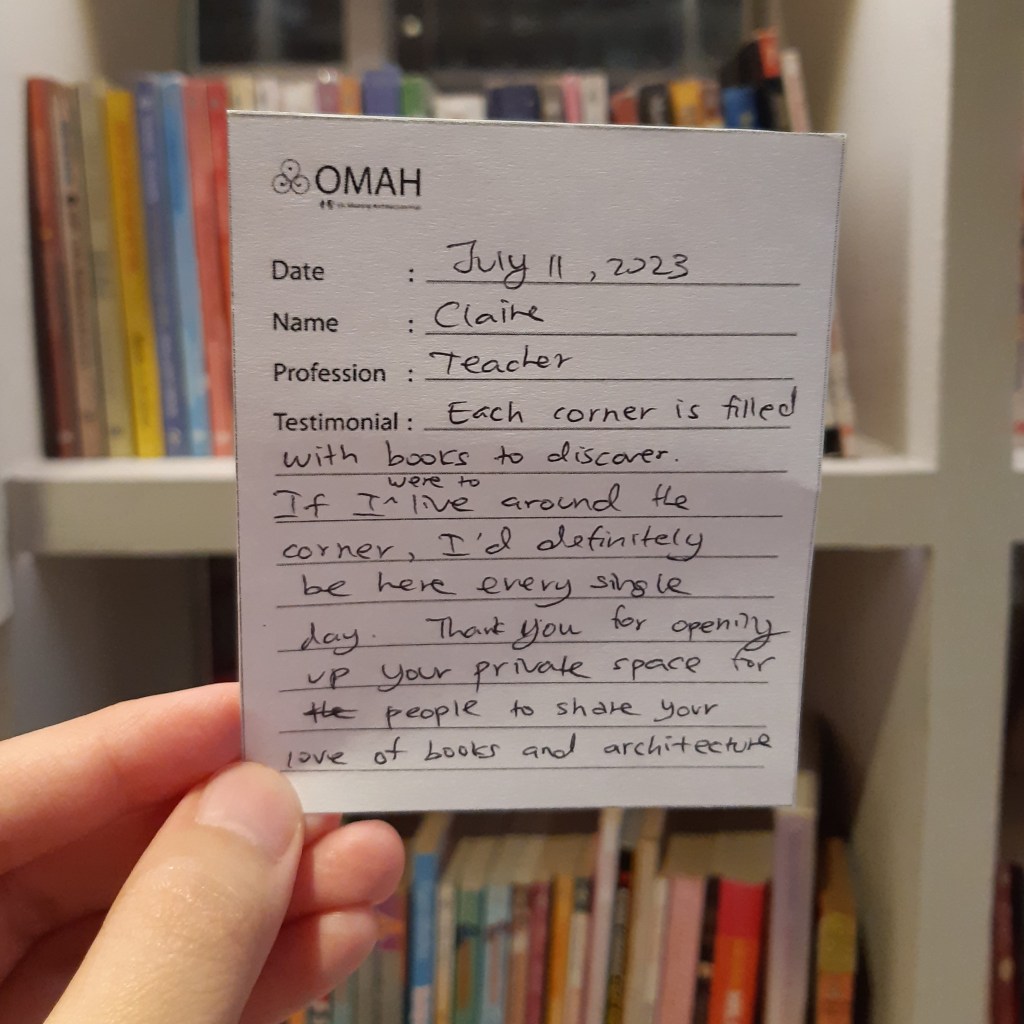 OMAH
Date : July 11, 2023
Name : Claire
Profession : Teacher
Testimonial : Each corner is filled
with books to discover.
If I ^ were to live around the
corner, I'd definitely
be here every single
day. Thank you for opening
up your private space for
the people to share your
love of books and architecture